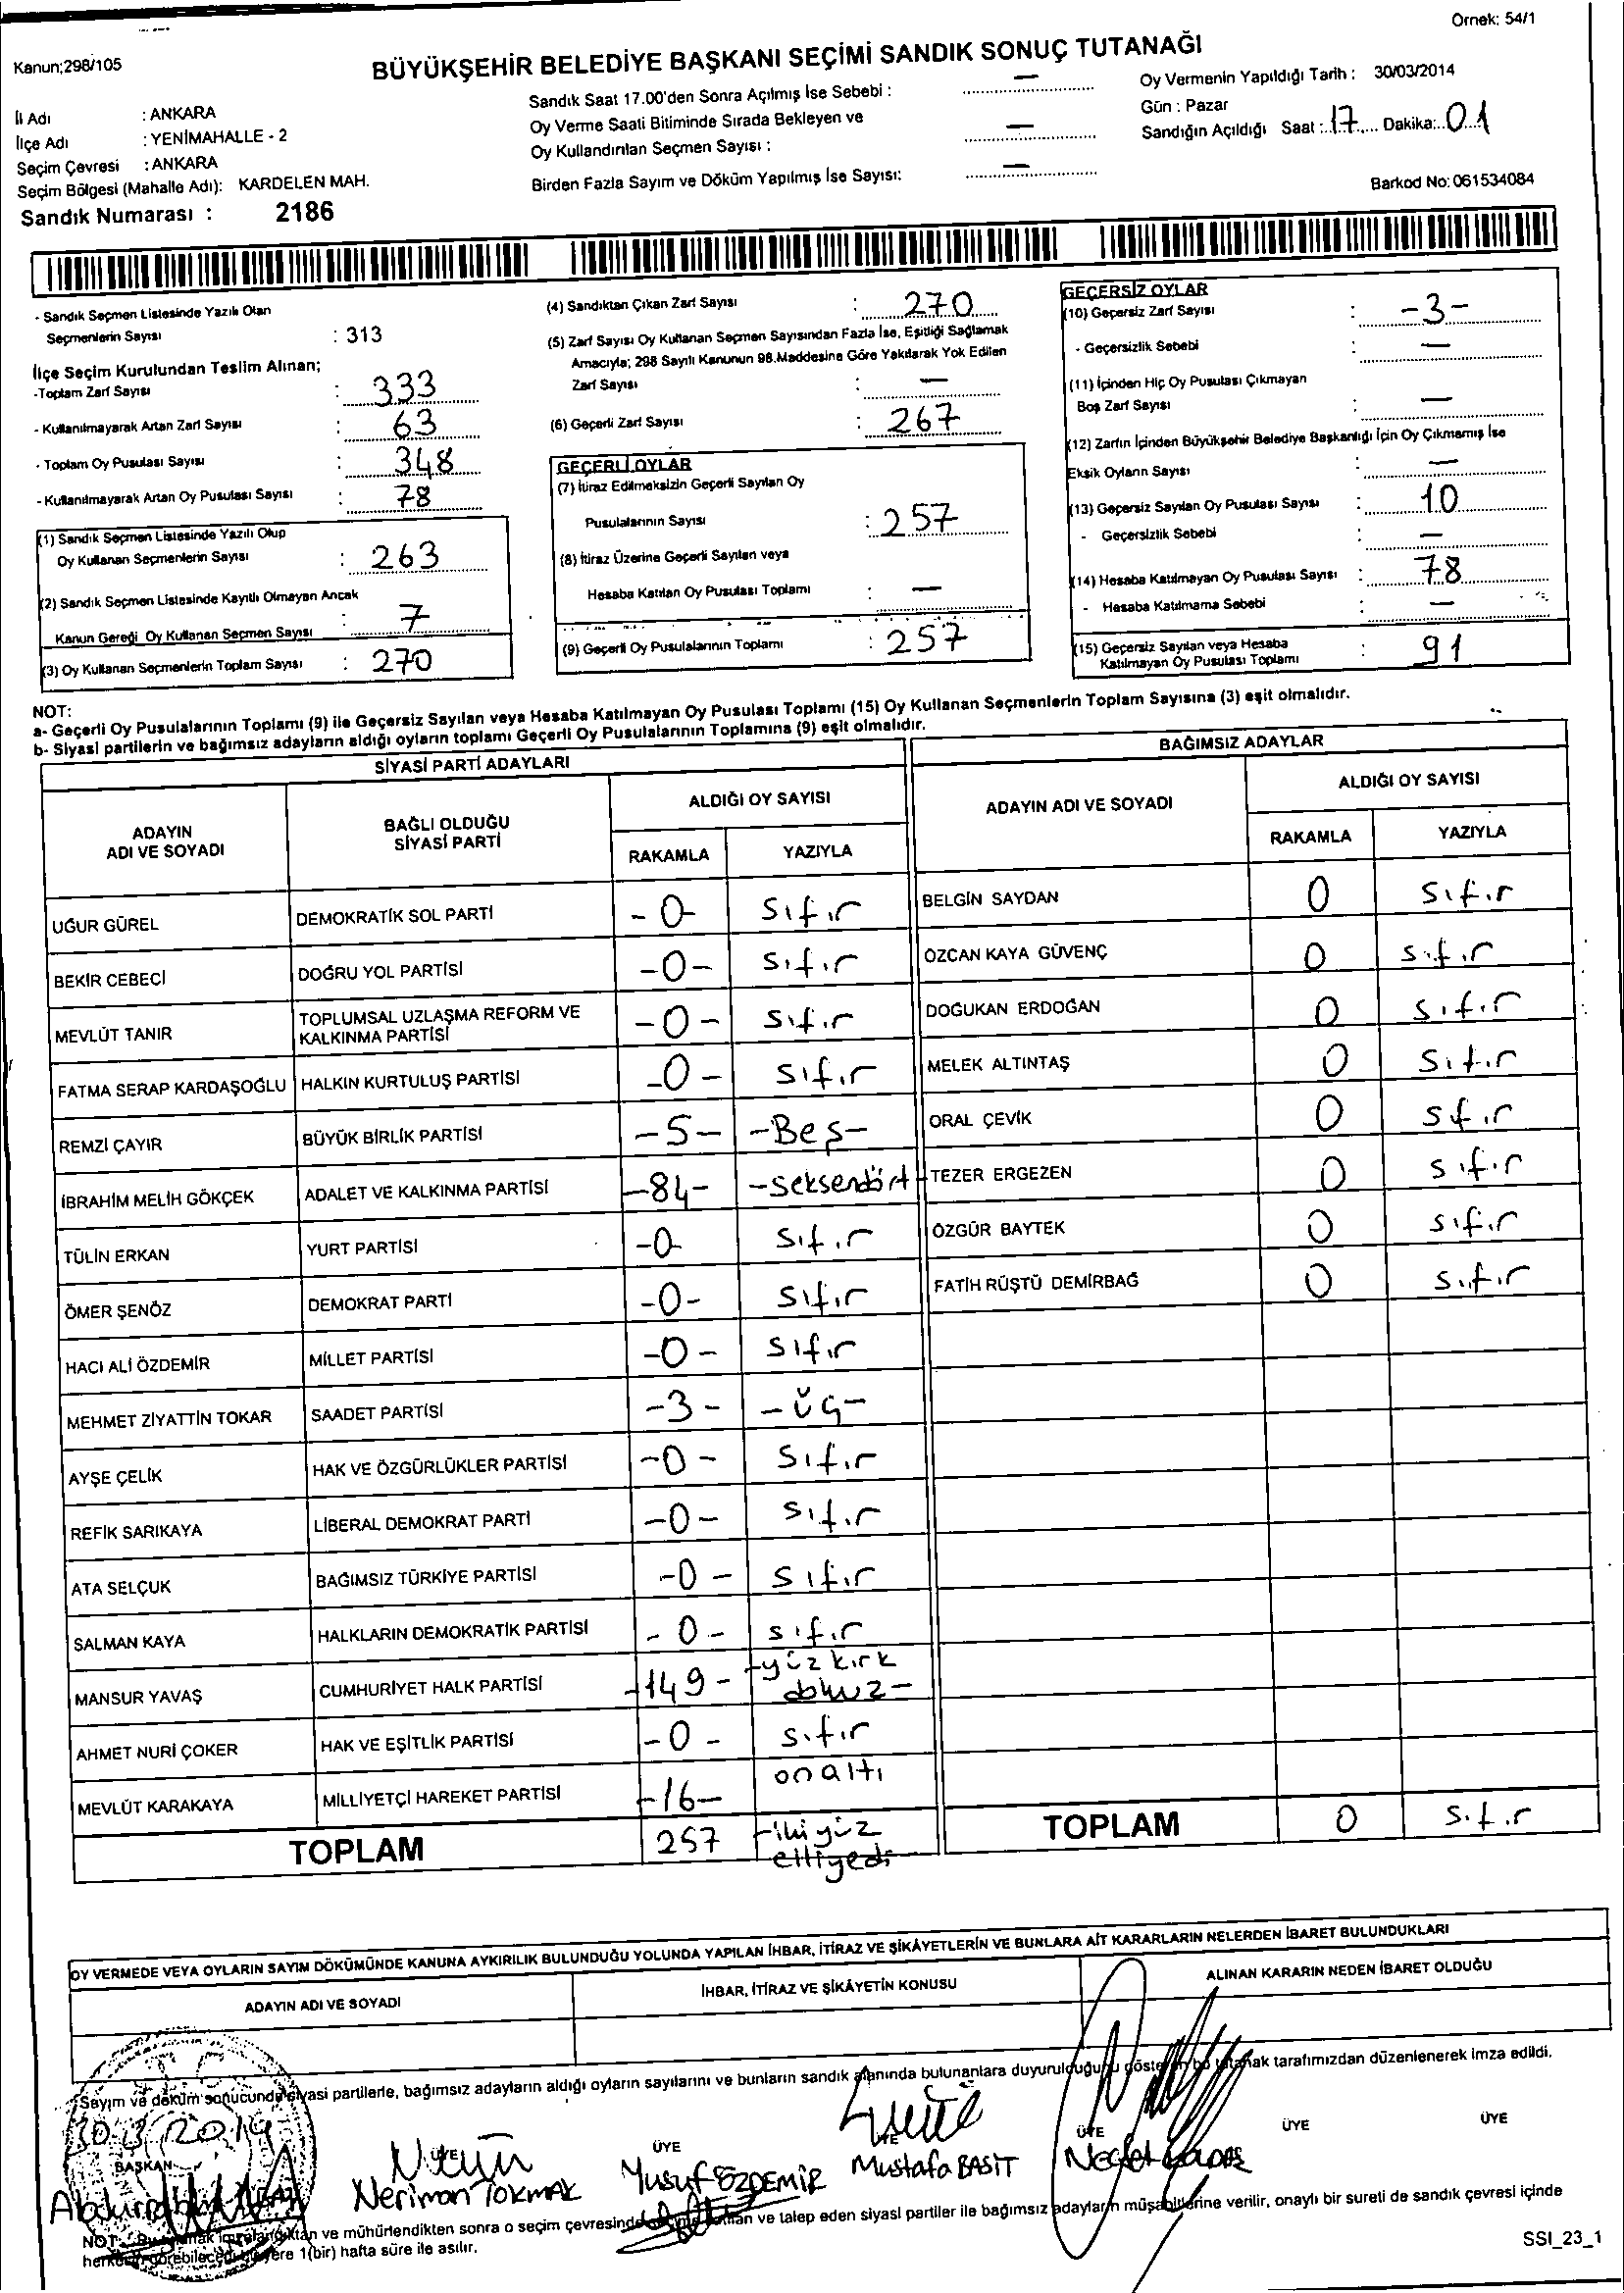 Örnek: 54/1
Kanun;298/105
BÜYÜKŞEHİR BELEDİYE BAŞKANI SEÇİMİ SANDIK SONUÇ TUTANAĞI
İl Adı : ANKARA
İlçe Adı : YENİMAHALLE - 2
Seçim Çevresi : ANKARA
Seçim Bölgesi (Mahalle Adı): KARDELEN MAH.
Sandık Numarası : 2186
Sandık Saat 17.00'den Sonra Açılmış İse Sebebi : —
Oy Verme Saati Bitiminde Sırada Bekleyen ve
Oy Kullandırılan Seçmen Sayısı : —
Birden Fazla Sayım ve Döküm Yapılmış İse Sayısı: —
Oy Vermenin Yapıldığı Tarih : 30/03/2014
Gün : Pazar
Sandığın Açıldığı Saat : 17 Dakika: 01
Barkod No: 061534084
- Sandık Seçmen Listesinde Yazılı Olan
Seçmenlerin Sayısı : 313
İlçe Seçim Kurulundan Teslim Alınan;
-Toplam Zarf Sayısı : 333
- Kullanılmayarak Artan Zarf Sayısı : 63
- Toplam Oy Pusulası Sayısı : 348
- Kullanılmayarak Artan Oy Pusulası Sayısı : 78
(1) Sandık Seçmen Listesinde Yazılı Olup
Oy Kullanan Seçmenlerin Sayısı : 263
(2) Sandık Seçmen Listesinde Kayıtlı Olmayan Ancak
Kanun Gereği Oy Kullanan Seçmen Sayısı : 7
(3) Oy Kullanan Seçmenlerin Toplam Sayısı : 270
(4) Sandıktan Çıkan Zarf Sayısı : 270
(5) Zarf Sayısı Oy Kullanan Seçmen Sayısından Fazla İse, Eşitliği Sağlamak
Amacıyla; 298 Sayılı Kanunun 98.Maddesine Göre Yakılarak Yok Edilen
Zarf Sayısı : —
(6) Geçerli Zarf Sayısı : 267
GEÇERLİ OYLAR
(7) İtiraz Edilmeksizin Geçerli Sayılan Oy
Pusulalarının Sayısı : 257
(8) İtiraz Üzerine Geçerli Sayılan veya
Hesaba Katılan Oy Pusulası Toplamı : —
(9) Geçerli Oy Pusulalarının Toplamı : 257
GEÇERSİZ OYLAR
(10) Geçersiz Zarf Sayısı : -3-
- Geçersizlik Sebebi : —
(11) İçinden Hiç Oy Pusulası Çıkmayan
Boş Zarf Sayısı : —
(12) Zarfın İçinden Büyükşehir Belediye Başkanlığı İçin Oy Çıkmamış İse
Eksik Oyların Sayısı : —
(13) Geçersiz Sayılan Oy Pusulası Sayısı : 10
- Geçersizlik Sebebi : —
(14) Hesaba Katılmayan Oy Pusulası Sayısı : 78
- Hesaba Katılmama Sebebi : —
(15) Geçersiz Sayılan veya Hesaba
Katılmayan Oy Pusulası Toplamı : 91
NOT:
a- Geçerli Oy Pusulalarının Toplamı (9) ile Geçersiz Sayılan veya Hesaba Katılmayan Oy Pusulası Toplamı (15) Oy Kullanan Seçmenlerin Toplam Sayısına (3) eşit olmalıdır.
b- Siyasi partilerin ve bağımsız adayların aldığı oyların toplamı Geçerli Oy Pusulalarının Toplamına (9) eşit olmalıdır.
SİYASİ PARTİ ADAYLARI
ADAYIN ADI VE SOYADI BAĞLI OLDUĞU SİYASİ PARTİ ALDIĞI OY SAYISI
RAKAMLA YAZIYLA
UĞUR GÜREL DEMOKRATİK SOL PARTİ -0- Sıfır
BEKİR CEBECİ DOĞRU YOL PARTİSİ -0- Sıfır
MEVLÜT TANIR TOPLUMSAL UZLAŞMA REFORM VE KALKINMA PARTİSİ -0- Sıfır
FATMA SERAP KARDAŞOĞLU HALKIN KURTULUŞ PARTİSİ -0- Sıfır
REMZİ ÇAYIR BÜYÜK BİRLİK PARTİSİ -5- -Beş-
İBRAHİM MELİH GÖKÇEK ADALET VE KALKINMA PARTİSİ -84- -seksendört
TÜLİN ERKAN YURT PARTİSİ -0- Sıfır
ÖMER ŞENÖZ DEMOKRAT PARTİ -0- Sıfır
HACI ALİ ÖZDEMİR MİLLET PARTİSİ -0- Sıfır
MEHMET ZİYATTİN TOKAR SAADET PARTİSİ -3- -üç-
AYŞE ÇELİK HAK VE ÖZGÜRLÜKLER PARTİSİ -0- Sıfır
REFİK SARIKAYA LİBERAL DEMOKRAT PARTİ -0- Sıfır
ATA SELÇUK BAĞIMSIZ TÜRKİYE PARTİSİ -0- Sıfır
SALMAN KAYA HALKLARIN DEMOKRATİK PARTİSİ -0- sıfır
MANSUR YAVAŞ CUMHURİYET HALK PARTİSİ -149- -yüz kırk dokuz-
AHMET NURİ ÇOKER HAK VE EŞİTLİK PARTİSİ -0- sıfır
MEVLÜT KARAKAYA MİLLİYETÇİ HAREKET PARTİSİ -16- onaltı
TOPLAM 257 -ikiyüz elliyedi
BAĞIMSIZ ADAYLAR
ADAYIN ADI VE SOYADI ALDIĞI OY SAYISI
RAKAMLA YAZIYLA
BELGİN SAYDAN 0 Sıfır
ÖZCAN KAYA GÜVENÇ 0 sıfır
DOĞUKAN ERDOĞAN 0 sıfır
MELEK ALTINTAŞ 0 Sıfır
ORAL ÇEVİK 0 Sıfır
TEZER ERGEZEN 0 sıfır
ÖZGÜR BAYTEK 0 sıfır
FATİH RÜŞTÜ DEMİRBAĞ 0 sıfır
TOPLAM 0 Sıfır
OY VERMEDE VEYA OYLARIN SAYIM DÖKÜMÜNDE KANUNA AYKIRILIK BULUNDUĞU YOLUNDA YAPILAN İHBAR, İTİRAZ VE ŞİKÂYETLERİN VE BUNLARA AİT KARARLARIN NELERDEN İBARET BULUNDUKLARI
ADAYIN ADI VE SOYADI İHBAR, İTİRAZ VE ŞİKÂYETİN KONUSU ALINAN KARARIN NEDEN İBARET OLDUĞU
Sayım ve döküm sonucunda siyasi partilerle, bağımsız adayların aldığı oyların sayılarını ve bunların sandık alanında bulunanlara duyurulduğunu gösteren bu tutanak tarafımızdan düzenlenerek imza edildi.
30.3.2014
BAŞKAN ÜYE ÜYE ÜYE ÜYE ÜYE ÜYE
Neriman TOKMAK Yusuf ÖZDEMİR Mustafa BASİT
NOT: Bu tutanak imzalandıktan ve mühürlendikten sonra o seçim çevresinde ve talep eden siyasi partiler ile bağımsız adayların müşahitlerine verilir, onaylı bir sureti de sandık çevresi içinde
herkesin görebileceği bir yere 1(bir) hafta süre ile asılır.
SSI_23_1